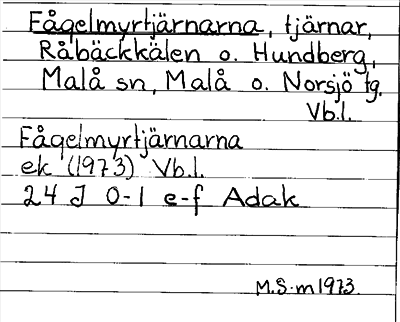 Fågelmyrtjärnarna, tjärnar,
Råbäckkälen o. Hundberg,
Malå sn, Malå o. Norsjö tg.
Vb.l.
Fågelmyrtjärnarna
ek (1973) Vb.l.
24 J 0-1 e-f Adak
M.S.m1973.